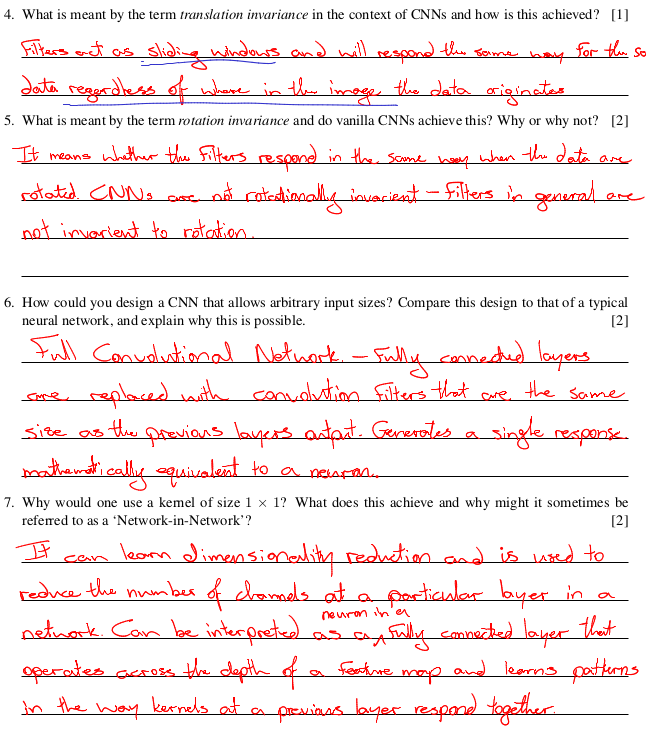 4. What is meant by the term translation invariance in the context of CNNs and how is this achieved? [1]
Filters act as sliding windows and will respond the same way for the sa
data regardless of where in the image the data originates
5. What is meant by the term rotation invariance and do vanilla CNNs achieve this? Why or why not? [2]
It means whether the filters respond in the same way when the data are
rotated. CNNs are not rotationally invarient – filters in general are
not invarient to rotation.
6. How could you design a CNN that allows arbitrary input sizes? Compare this design to that of a typical
neural network, and explain why this is possible. [2]
Full Convolutional Network. – Fully connected layers
are replaced with convolution filters that are the same
size as the previous layers output. Generates a single response
mathematically equivalent to a neuron.
7. Why would one use a kernel of size 1 × 1? What does this achieve and why might it sometimes be
referred to as a ‘Network-in-Network’? [2]
It can learn dimensionality reduction and is used to
reduce the number of channels at a particular layer in a
network. Can be interpreted as a neuron in a fully connected layer that
operates across the depth of a feature map and learns patterns
in the way kernels at a previous layer respond together.